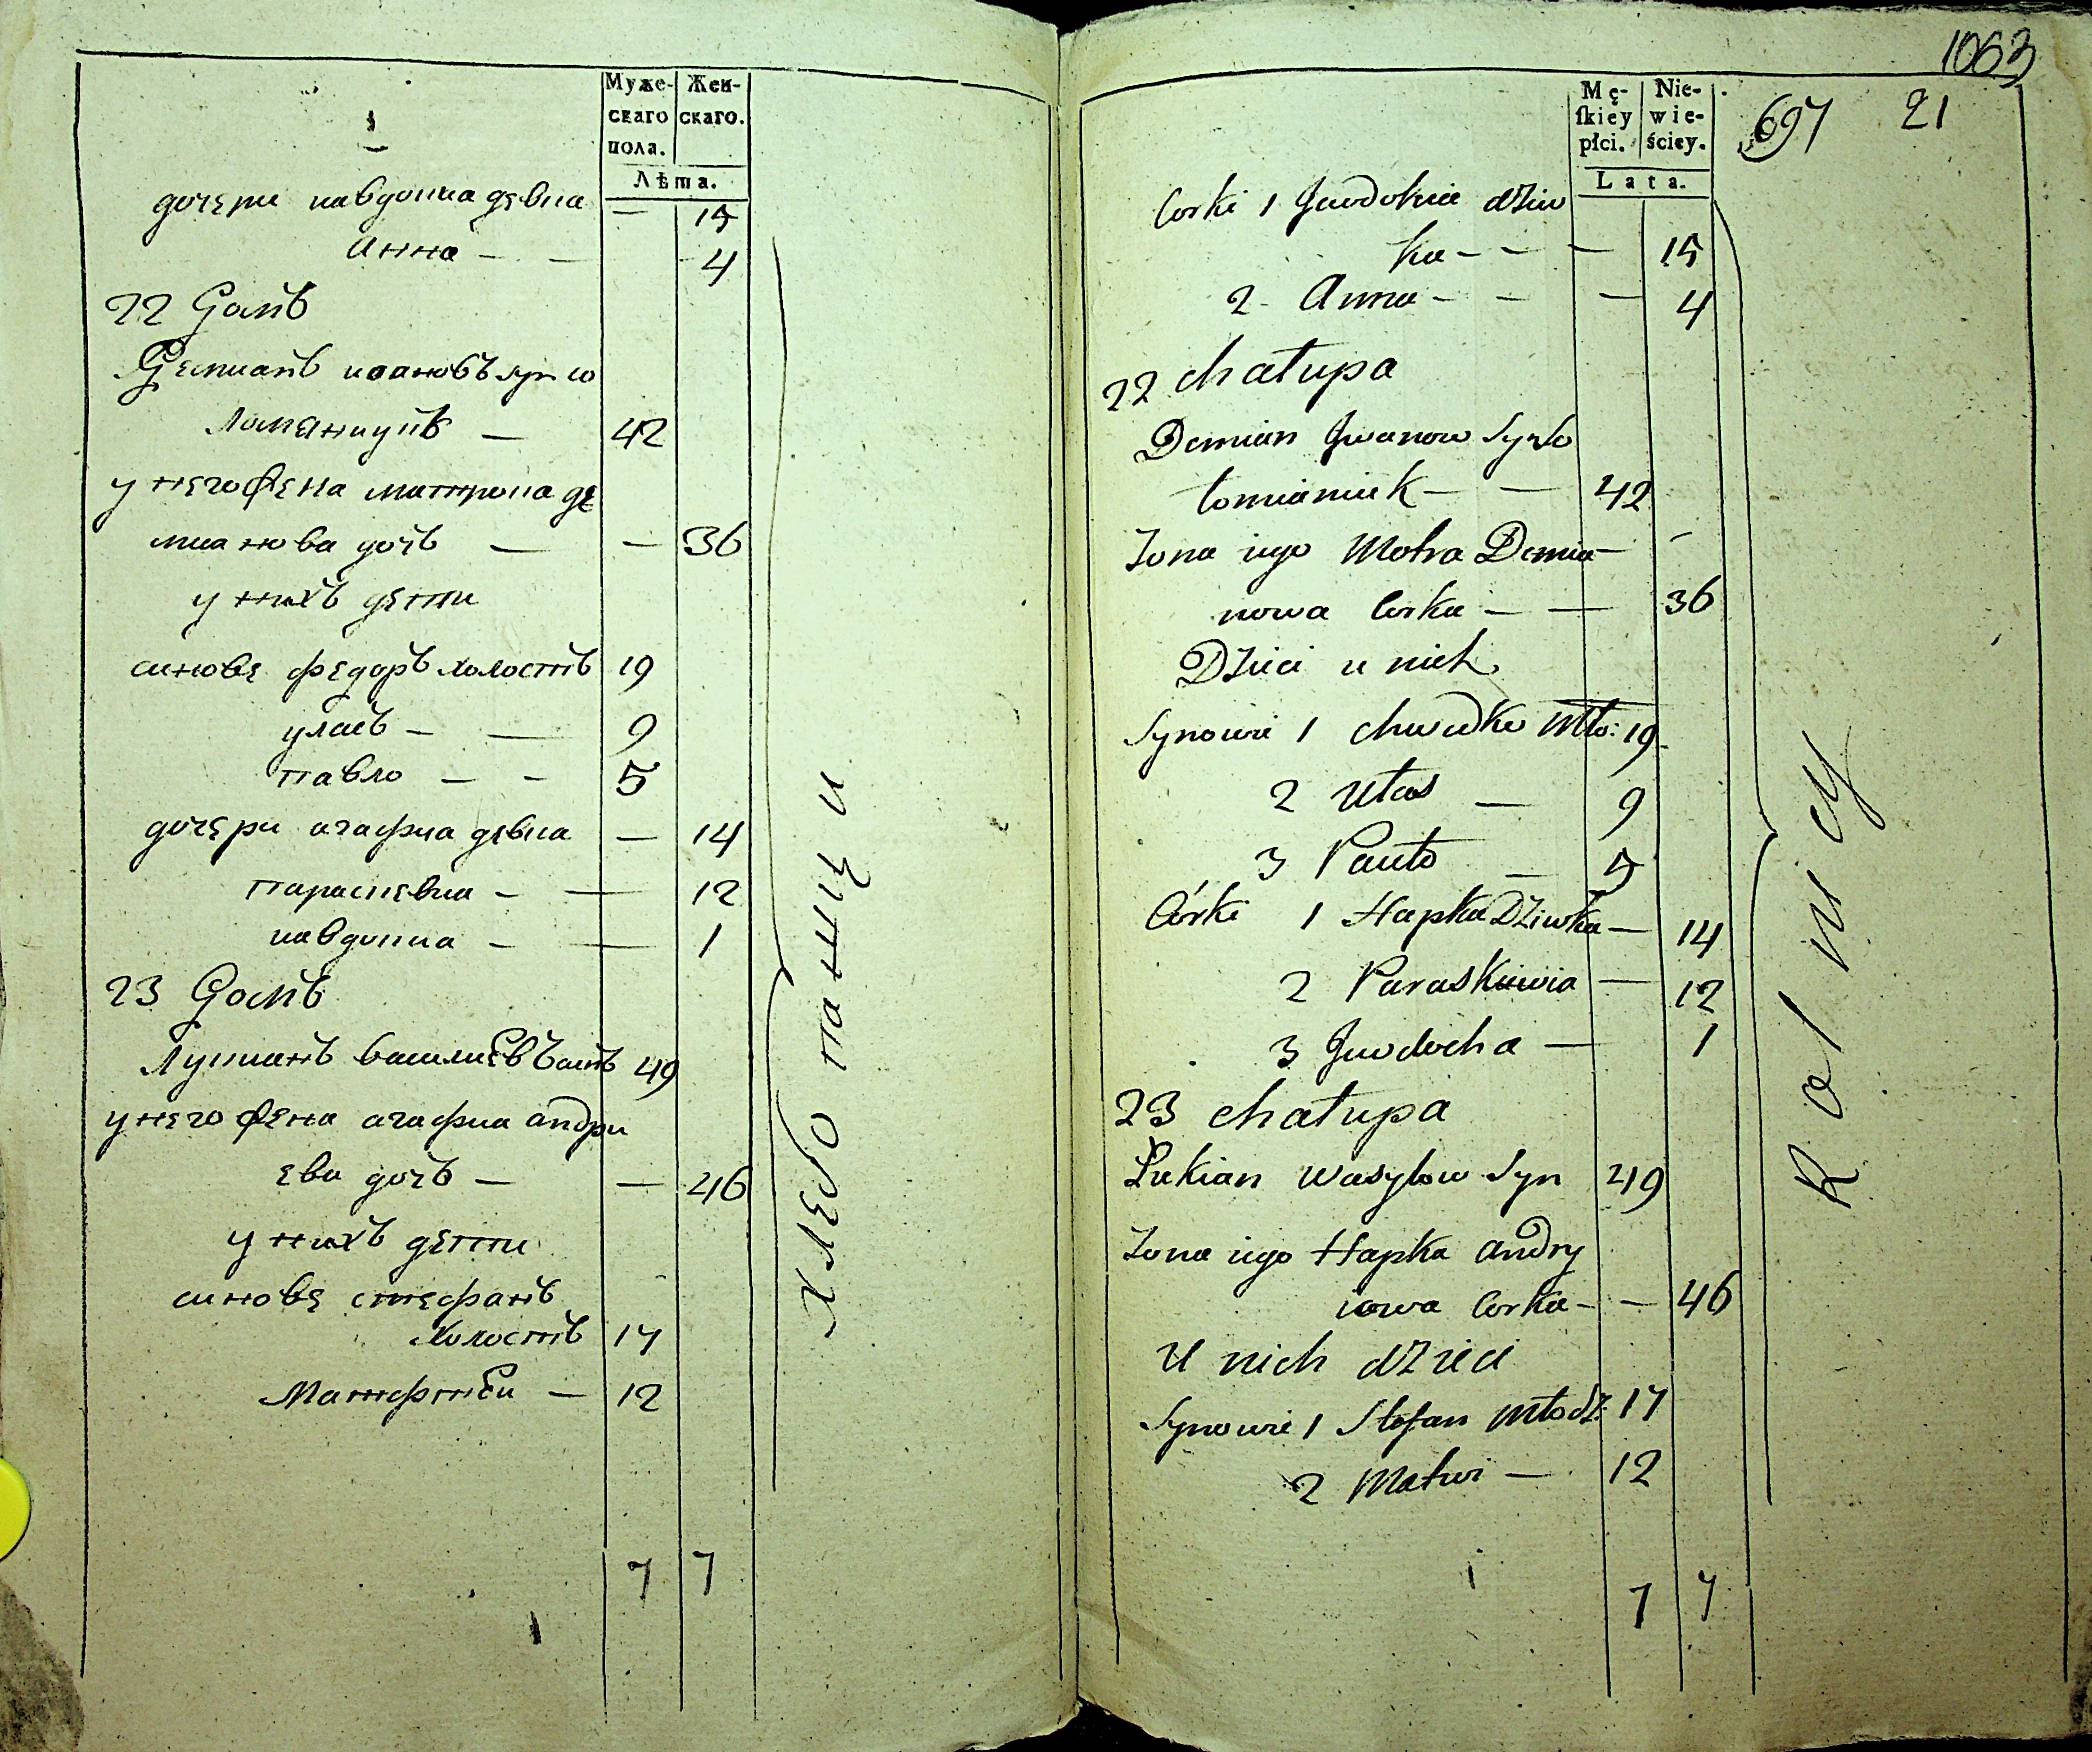 Муже-
скаго
пола.
Жен-
скаго.
Лѣта.
дочери иавдокиа девка — 15
Анна — — 4
22 Домъ
Демианъ ивановъ Syn ло
Ломаницкъ — 42
у него жена матрона де
мианова дочъ — — 36
у нихъ дети
синове федоръ холостъ 19
уласъ — — 9
павло — - 5
дочери агафиа девка — 14
парасковиа — — 12
иавдокиа — — 1
23 Домъ
Лукианъ василиевъ синъ 49
у него жена агафиа андри
ева дочъ — — 46
у нихъ дети
синове стефанъ
холостъ 17
Матфтѣи — 12
7 7
хлебо пашци
1063
697 21
Mę-
ſkiey
płci.
Nie-
wie-
ściey.
Lata.
Corki 1 Jwdokiia dziw
ka - - - — 15
2 Anna - - — 4
22 chałupa
Demian Jwanow Syn ło
łomianiuk — — 42
Zona iego Motra Demia—
nowa Corka — — 36
Dzieci u nich
Synowie 1 chwedko Mło: 19
2 Ułas — 9
3 Pauło — 5
Córki 1 Hapka Dziwka — 14
2 Paraskiewia — 12
3 Jwdocha — 1
23 chałupa
Łukian Wasylow Syn 49
Zona iego Hapka Andry
iowa Corka - — 46
U nich dzieci
Synowie 1 Stefan Młodz: 17
2 Matwi — 12
7 7
Rolnicy